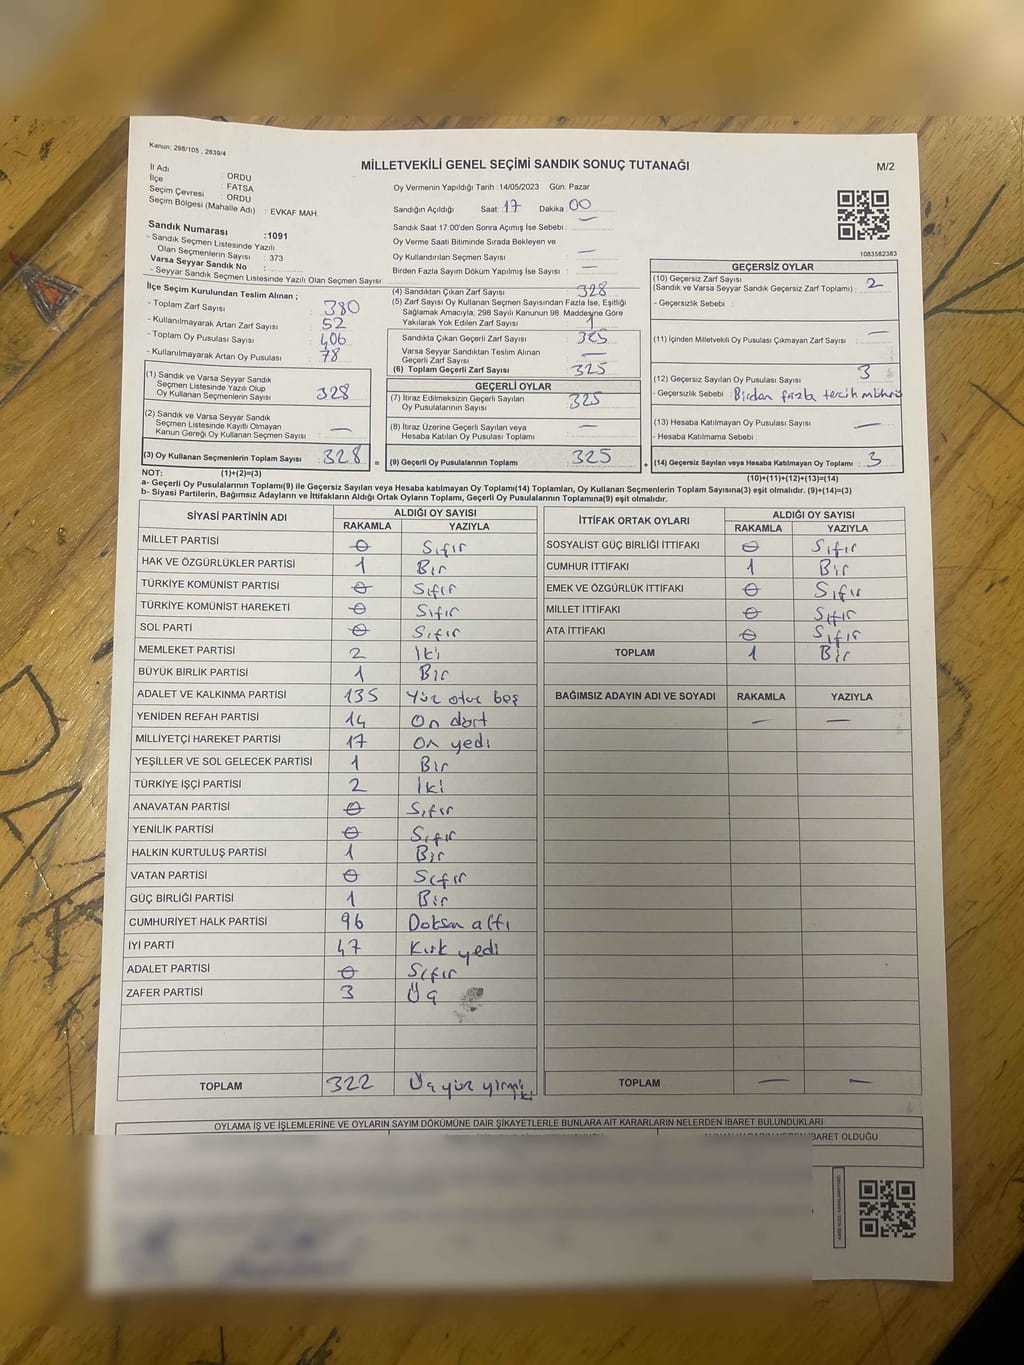 Kanun: 298/105 , 2839/4
MİLLETVEKİLİ GENEL SEÇİMİ SANDIK SONUÇ TUTANAĞI
M/2
İl Adı : ORDU
İlçe : FATSA
Seçim Çevresi : ORDU
Seçim Bölgesi (Mahalle Adı) : EVKAF MAH.
Sandık Numarası :1091
- Sandık Seçmen Listesinde Yazılı
Olan Seçmenlerin Sayısı : 373
Varsa Seyyar Sandık No :
- Seyyar Sandık Seçmen Listesinde Yazılı Olan Seçmen Sayısı
Oy Vermenin Yapıldığı Tarih :14/05/2023 Gün: Pazar
Sandığın Açıldığı Saat: 17 Dakika: 00
Sandık Saat 17:00'den Sonra Açılmış İse Sebebi : —
Oy Verme Saati Bitiminde Sırada Bekleyen ve
Oy Kullandırılan Seçmen Sayısı —
Birden Fazla Sayım Döküm Yapılmış İse Sayısı —
1083582383
İlçe Seçim Kurulundan Teslim Alınan ;
- Toplam Zarf Sayısı 380
- Kullanılmayarak Artan Zarf Sayısı 52
- Toplam Oy Pusulası Sayısı 406
- Kullanılmayarak Artan Oy Pusulası Sayısı 78
(1) Sandık ve Varsa Seyyar Sandık
Seçmen Listesinde Yazılı Olup
Oy Kullanan Seçmenlerin Sayısı 328
(2) Sandık ve Varsa Seyyar Sandık
Seçmen Listesinde Kayıtlı Olmayan
Kanun Gereği Oy Kullanan Seçmen Sayısı —
(3) Oy Kullanan Seçmenlerin Toplam Sayısı 328
(4) Sandıktan Çıkan Zarf Sayısı 328
(5) Zarf Sayısı Oy Kullanan Seçmen Sayısından Fazla İse, Eşitliği
Sağlamak Amacıyla; 298 Sayılı Kanunun 98. Maddesine Göre
Yakılarak Yok Edilen Zarf Sayısı 1
Sandıkta Çıkan Geçerli Zarf Sayısı 325
Varsa Seyyar Sandıktan Teslim Alınan
Geçerli Zarf Sayısı —
(6) Toplam Geçerli Zarf Sayısı 325
GEÇERLİ OYLAR
(7) İtiraz Edilmeksizin Geçerli Sayılan
Oy Pusulalarının Sayısı 325
(8) İtiraz Üzerine Geçerli Sayılan veya
Hesaba Katılan Oy Pusulası Toplamı —
= (9) Geçerli Oy Pusulalarının Toplamı 325
GEÇERSİZ OYLAR
(10) Geçersiz Zarf Sayısı
(Sandık ve Varsa Seyyar Sandık Geçersiz Zarf Toplamı) : 2
- Geçersizlik Sebebi :
(11) İçinden Milletvekili Oy Pusulası Çıkmayan Zarf Sayısı : —
(12) Geçersiz Sayılan Oy Pusulası Sayısı : 3
- Geçersizlik Sebebi : Birden fazla tercih mührü
(13) Hesaba Katılmayan Oy Pusulası Sayısı : —
- Hesaba Katılmama Sebebi :
+ (14) Geçersiz Sayılan veya Hesaba Katılmayan Oy Toplamı : 3
NOT: (1)+(2)=(3)
(10)+(11)+(12)+(13)=(14)
a- Geçerli Oy Pusulalarının Toplamı(9) ile Geçersiz Sayılan veya Hesaba katılmayan Oy Toplamı(14) Toplamları, Oy Kullanan Seçmenlerin Toplam Sayısına(3) eşit olmalıdır. (9)+(14)=(3)
b- Siyasi Partilerin, Bağımsız Adayların ve İttifakların Aldığı Ortak Oyların Toplamı, Geçerli Oy Pusulalarının Toplamına(9) eşit olmalıdır.
SİYASİ PARTİNİN ADI ALDIĞI OY SAYISI
RAKAMLA YAZIYLA
MİLLET PARTİSİ 0 Sıfır
HAK VE ÖZGÜRLÜKLER PARTİSİ 1 Bir
TÜRKİYE KOMÜNİST PARTİSİ 0 Sıfır
TÜRKİYE KOMÜNİST HAREKETİ 0 Sıfır
SOL PARTİ 0 Sıfır
MEMLEKET PARTİSİ 2 İki
BÜYÜK BİRLİK PARTİSİ 1 Bir
ADALET VE KALKINMA PARTİSİ 135 Yüz otuz beş
YENİDEN REFAH PARTİSİ 14 On dört
MİLLİYETÇİ HAREKET PARTİSİ 17 On yedi
YEŞİLLER VE SOL GELECEK PARTİSİ 1 Bir
TÜRKİYE İŞÇİ PARTİSİ 2 İki
ANAVATAN PARTİSİ 0 Sıfır
YENİLİK PARTİSİ 0 Sıfır
HALKIN KURTULUŞ PARTİSİ 1 Bir
VATAN PARTİSİ 0 Sıfır
GÜÇ BİRLİĞİ PARTİSİ 1 Bir
CUMHURİYET HALK PARTİSİ 96 Doksan altı
İYİ PARTİ 47 Kırk yedi
ADALET PARTİSİ 0 Sıfır
ZAFER PARTİSİ 3 Üç
TOPLAM 322 Üç yüz yirmi iki
İTTİFAK ORTAK OYLARI ALDIĞI OY SAYISI
RAKAMLA YAZIYLA
SOSYALİST GÜÇ BİRLİĞİ İTTİFAKI 0 Sıfır
CUMHUR İTTİFAKI 1 Bir
EMEK VE ÖZGÜRLÜK İTTİFAKI 0 Sıfır
MİLLET İTTİFAKI 0 Sıfır
ATA İTTİFAKI 0 Sıfır
TOPLAM 1 Bir
BAĞIMSIZ ADAYIN ADI VE SOYADI RAKAMLA YAZIYLA
— —
TOPLAM — —
OYLAMA İŞ VE İŞLEMLERİNE VE OYLARIN SAYIM DÖKÜMÜNE DAİR ŞİKAYETLERLE BUNLARA AİT KARARLARIN NELERDEN İBARET BULUNDUKLARI
İBARET OLDUĞU